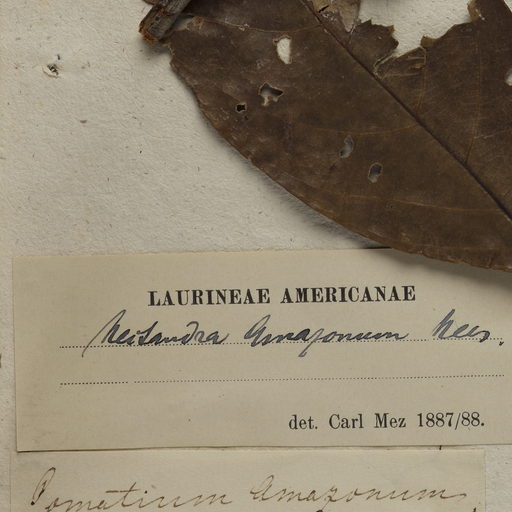 LAURINEAE AMERICANAE
Nectandra Amazonum Nees.
det. Carl Mez 1887/88.
Pomatium Amazonum